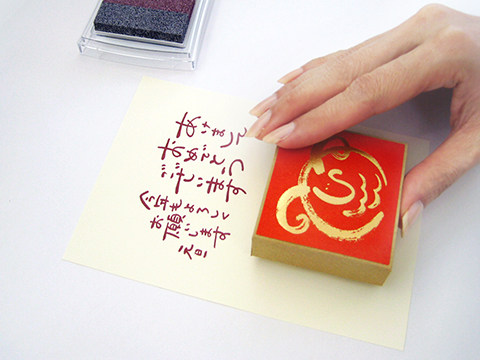 あけまして
おめでとう
ございます
今年もよろしく
お願いします
元旦